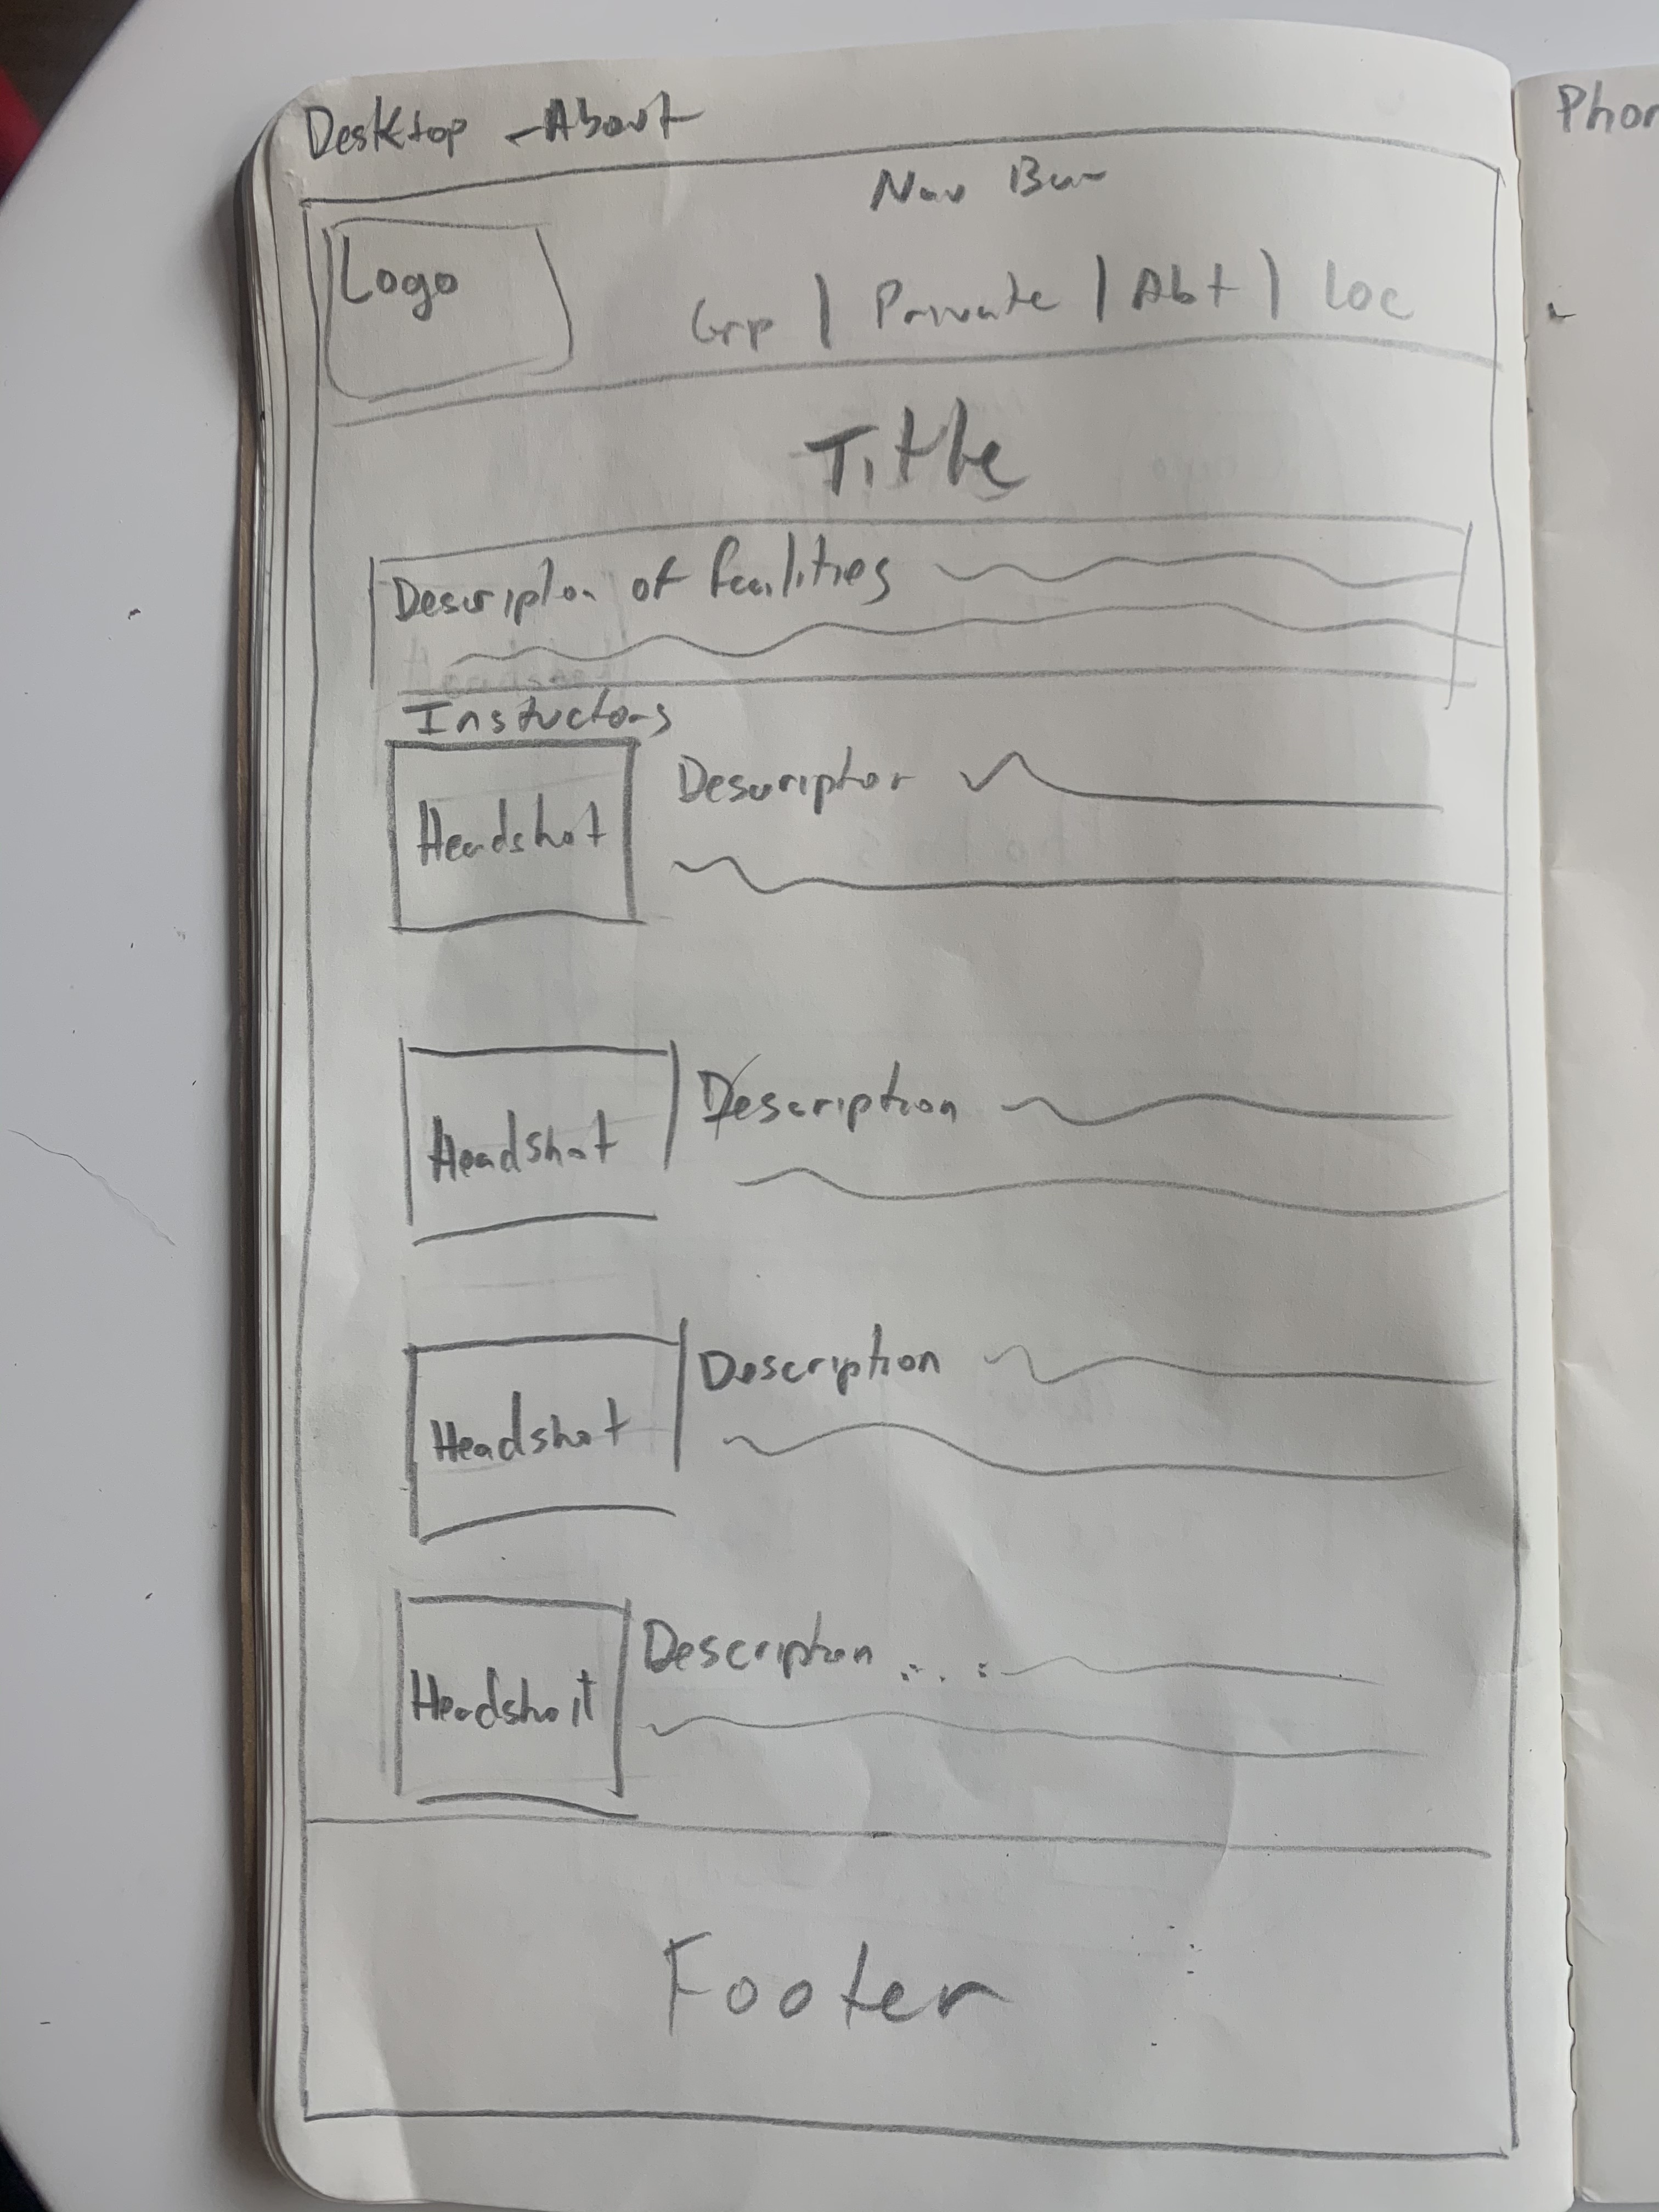 Desktop - About
Nav Bar
Logo
Grp | Private | Abt | Loc
Title
Description of facilities
Instuctors
Headshot
Description
Headshot
Description
Headshot
Description
Headshot
Description ...
Footer
Phon